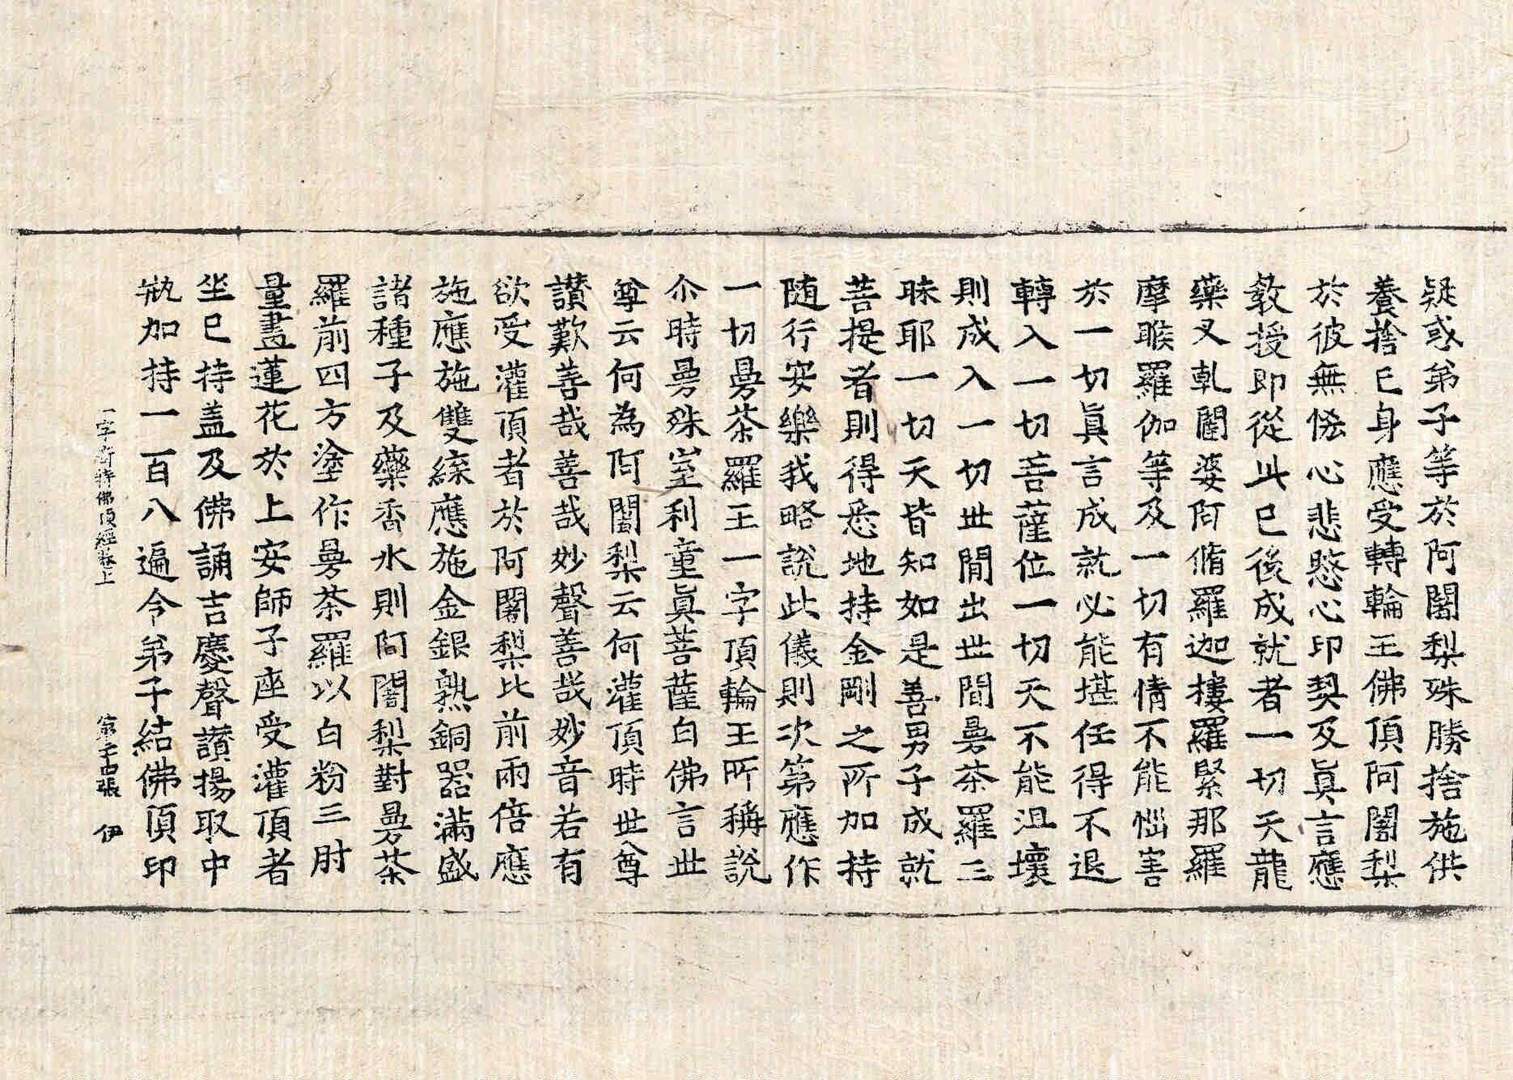 疑惑弟子等於阿闍梨殊勝捨施供
養捨己身應受轉輪王佛頂阿闍梨
於彼無恡心悲愍心印契及眞言應
教授即從此已後成就者一切天龍
藥叉乹闥婆阿脩羅迦樓羅緊那羅
摩睺羅伽等及一切有情不能惱害
於一切眞言成就必能堪任得不退
轉入一切菩薩位一切天不能沮壞
則成入一切世間出世間曼茶羅三
昧耶一切天皆知如是善男子成就
菩提者則得悉地持金剛之所加持
随行安樂我略說此儀則次第應作
一切曼茶羅王一字頂輪王所稱說
尒時曼殊室利童眞菩薩白佛言世
尊云何為阿闍梨云何灌頂時世尊
讃歎善哉善哉妙聲善哉妙音若有
欲受灌頂者於阿闍梨比前兩倍應
施應施雙緤應施金銀熟銅器滿盛
諸種子及藥香水則阿闍梨對曼茶
羅前四方塗作曼茶羅以白粉三肘
量畫蓮花於上安師子座受灌頂者
坐已持盖及佛誦吉慶聲讃揚取中
瓶加持一百八遍令弟子結佛頂印
一字奇特佛頂經卷上 第二十四張 伊